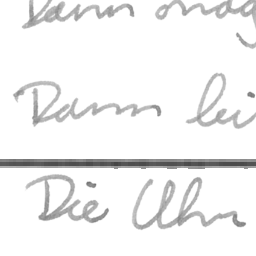 Dann mag
Dann bei
Die Uhr